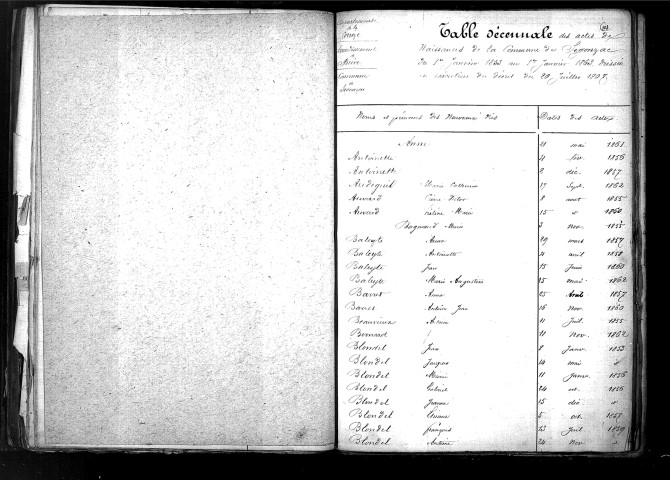 Département
de la
Corrèze
Arrondissement
de
Brive
Commune
de
Segonzac
Table décennale des actes de
Naissances de la Commune de Segonzac
du 1er Janvier 1853 au 1er Janvier 1863 Dressée
en exécution du décret du 20 Juillet 1807.
Noms et prénoms des Nouveaux Nés Dates des actes
Anne 21 mai 1861
Antoinette 4 fév. 1856
Antoinette 2 déc. 1857
Audeguil Marie Catherine 17 Sept. 1862
Auvard Pierre Victor 8 aout 1855
Auvard Marie 15 d 1860
Bagnard Marie 3 Nov. 1855
Baleyte Anne 29 mars 1857
Baleyte Antoinette 4 avril 1858
Baleyte Jean 15 Juin 1860
Baleyte Marie Augustine 25 mai 1862
Barret Anne 25 Avril 1857
Antoine Jean 16 Nov. 1860
Beauvieux 11 Juil. 1855
Bernard 11 Nov. 1862
Blondel Jean 8 Janv. 1853
Blondel Jacques 14 mai d
Blondel Marie 11 Janv. 1856
Blondel Gabriel 24 oct. 1856
Blondel Jeanne 15 déc. d
Blondel 5 oct. 1857
Blondel françois 23 Juil. 1859
Blondel Antoine 24 Nov. d